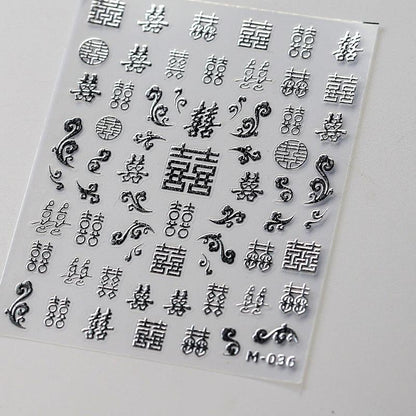 囍 囍 囍 囍 囍 囍
囍 囍 囍 囍 囍 囍 囍
囍 囍 囍 囍
囍 囍 囍
囍 囍 囍
囍 囍 囍 囍
囍 囍 囍 囍 囍
囍 囍 囍 囍 囍 囍 囍
囍 囍 囍 囍
M-036